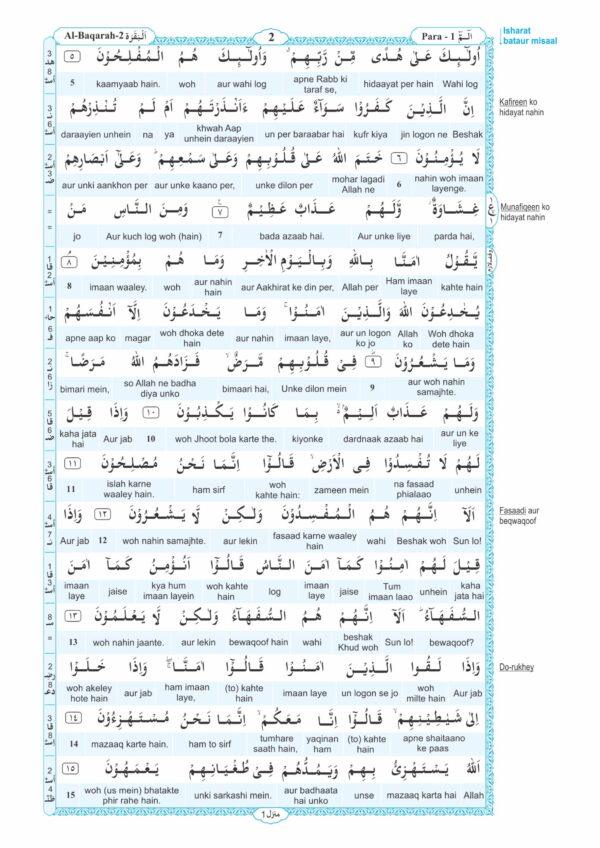 Al-Baqarah-2 اَلْبَقَرَة
2
Para - 1 الٓـمّٓ
Isharat
bataur misaal
اُولٰٓئِكَ عَلٰى هُدًى مِّنْ رَّبِّهِمْ ۗ وَاُولٰٓئِكَ هُمُ الْمُفْلِحُوْنَ ٥
Wahi log hidaayat per hain apne Rabb ki taraf se, aur wahi log woh kaamyaab hain. 5
اِنَّ الَّذِيْنَ كَفَرُوْا سَوَآءٌ عَلَيْهِمْ ءَاَنْذَرْتَهُمْ اَمْ لَمْ تُنْذِرْهُمْ
Beshak jin logon ne kufr kiya baraabar hai un per khwah Aap daraayein unhein ya na daraayien unhein
Kafireen ko
hidayat nahin
لَا يُؤْمِنُوْنَ ٦ خَتَمَ اللّٰهُ عَلٰى قُلُوْبِهِمْ وَعَلٰى سَمْعِهِمْ ۗ وَعَلٰٓى اَبْصَارِهِمْ
nahin woh imaan layenge. 6 mohar lagadi Allah ne unke dilon per, aur unke kaano per, aur unki aankhon per
غِشَاوَةٌ ۫ وَّلَهُمْ عَذَابٌ عَظِيْمٌ ٧ وَمِنَ النَّاسِ مَنْ
parda hai, Aur unke liye bada azaab hai. 7 Aur kuch log woh (hain) jo
Munafiqeen ko
hidayat nahin
يَّقُوْلُ اٰمَنَّا بِاللّٰهِ وَبِالْيَوْمِ الْاٰخِرِ وَمَا هُمْ بِمُؤْمِنِيْنَ ۘ ٨
kahte hain Ham imaan laye Allah per aur Aakhirat ke din per, aur nahin hain woh imaan waaley. 8
يُخٰدِعُوْنَ اللّٰهَ وَالَّذِيْنَ اٰمَنُوْا ۚ وَمَا يَخْدَعُوْنَ اِلَّآ اَنْفُسَهُمْ
Woh dhoka dete hain Allah ko aur un logon ko jo imaan laye, aur nahin woh dhoka dete hain magar apne aap ko
وَمَا يَشْعُرُوْنَ ۗ ٩ فِيْ قُلُوْبِهِمْ مَّرَضٌ ۙ فَزَادَهُمُ اللّٰهُ مَرَضًا ۚ
aur woh nahin samajhte. 9 Unke dilon mein bimaari hai, so Allah ne badha diya unko bimari mein,
وَلَهُمْ عَذَابٌ اَلِيْمٌ ۢ ۙ بِمَا كَانُوْا يَكْذِبُوْنَ ١٠ وَاِذَا قِيْلَ
aur un ke liye dardnaak azaab hai kiyonke woh Jhoot bola karte the. 10 Aur jab kaha jata hai
لَهُمْ لَا تُفْسِدُوْا فِى الْاَرْضِ ۙ قَالُوْٓا اِنَّمَا نَحْنُ مُصْلِحُوْنَ ١١
unhein na fasaad phialaao zameen mein woh kahte hain: ham sirf islah karne waaley hain. 11
اَلَآ اِنَّهُمْ هُمُ الْمُفْسِدُوْنَ وَلٰكِنْ لَّا يَشْعُرُوْنَ ١٢ وَاِذَا
Sun lo! Beshak woh wahi fasaad karne waaley hain aur lekin woh nahin samajhte. 12 Aur jab
Fasaadi aur
beqwaqoof
قِيْلَ لَهُمْ اٰمِنُوْا كَمَآ اٰمَنَ النَّاسُ قَالُوْٓا اَنُؤْمِنُ كَمَآ اٰمَنَ
kaha jata hai unhein Tum imaan laao jaise imaan laye log woh kahte hain kya hum imaan layein jaise imaan laye
السُّفَهَآءُ ۗ اَلَآ اِنَّهُمْ هُمُ السُّفَهَآءُ وَلٰكِنْ لَّا يَعْلَمُوْنَ ١٣
bewaqoof? Sun lo! beshak Khud woh wahi bewaqoof hain aur lekin woh nahin jaante. 13
وَاِذَا لَقُوا الَّذِيْنَ اٰمَنُوْا قَالُوْٓا اٰمَنَّا ۚ وَاِذَا خَلَوْا
Aur jab woh milte hain un logon se jo imaan laye (to) kahte hain ham imaan laye, aur jab woh akeley hote hain
Do-rukhey
اِلٰى شَيٰطِيْنِهِمْ ۙ قَالُوْٓا اِنَّا مَعَكُمْ ۙ اِنَّمَا نَحْنُ مُسْتَهْزِءُوْنَ ١٤
apne shaitaano ke paas (to) kahte hain yaqinan ham tumhare saath hain, ham to sirf mazaaq karte hain. 14
اَللّٰهُ يَسْتَهْزِئُ بِهِمْ وَيَمُدُّهُمْ فِيْ طُغْيَانِهِمْ يَعْمَهُوْنَ ١٥
Allah mazaaq karta hai unse aur badhaata hai unko unki sarkashi mein. woh (us mein) bhatakte phir rahe hain. 15
منزل 1